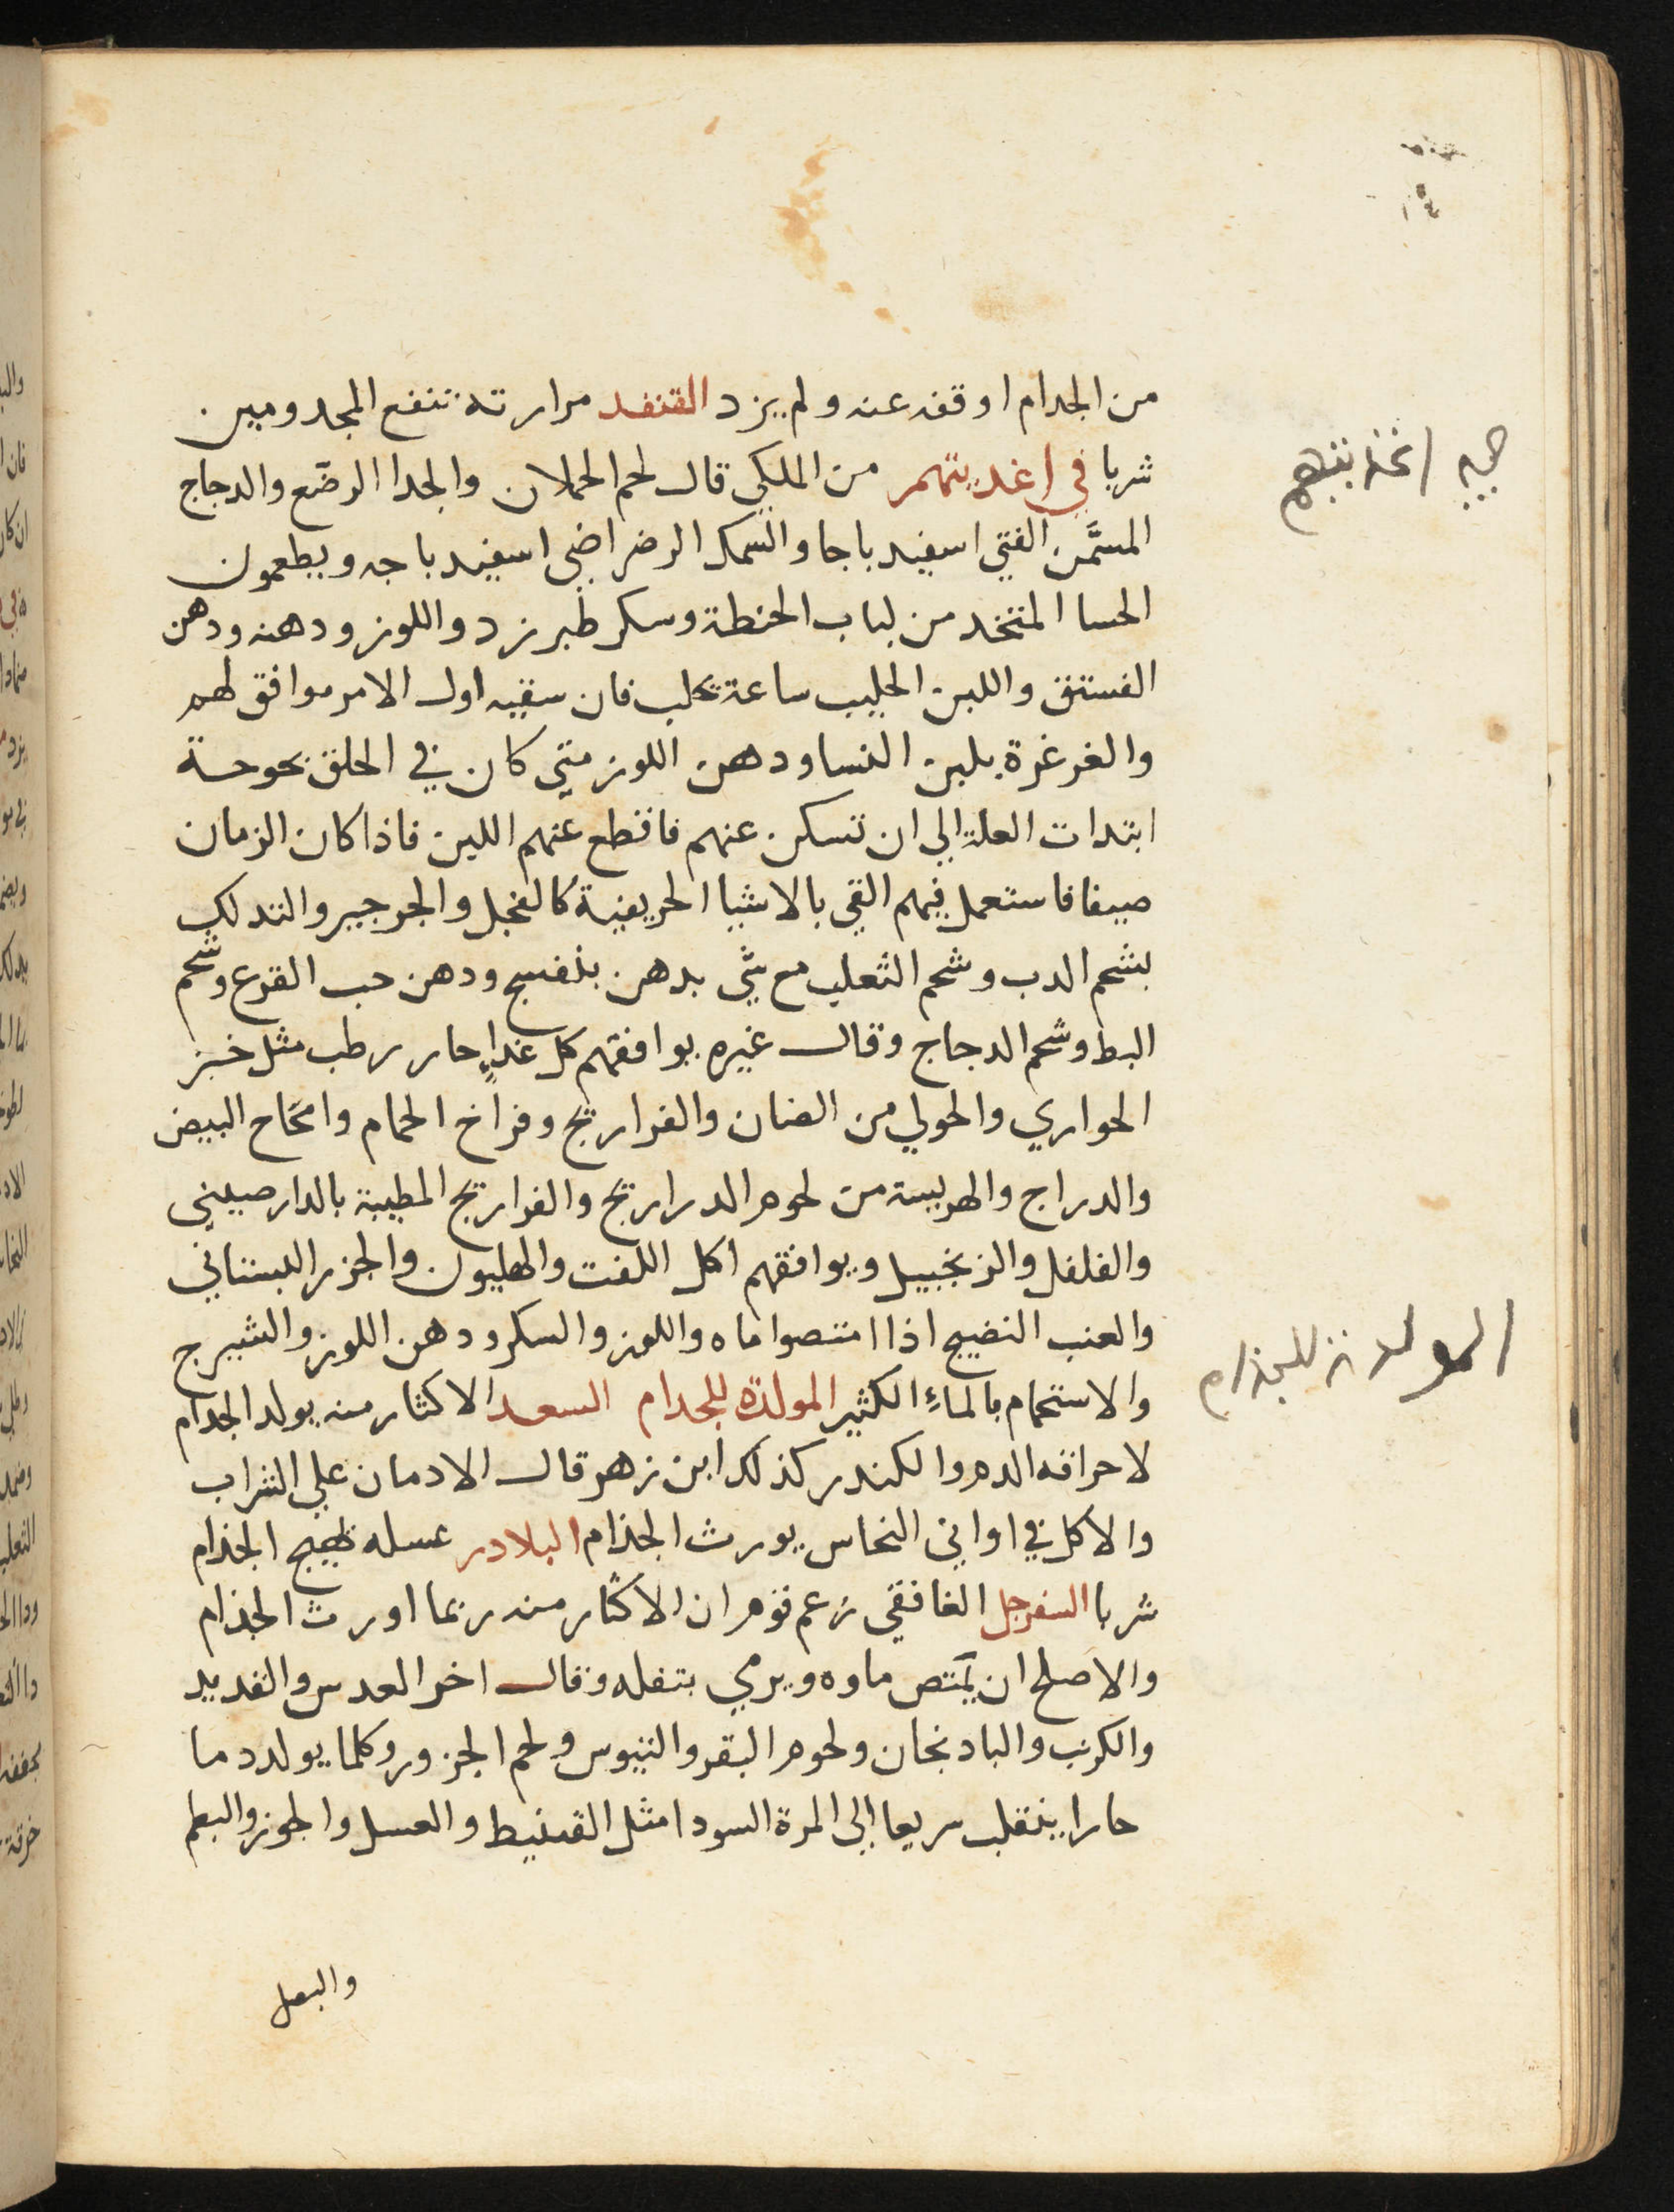 من الجدام اوقفه عنه ولم يزد القنفد مرارته تنفع المجدومين
شربا في اغديتهم من الملكي قال لحم الحملان والجدا الرضّع والدجاج
المسمَّن الفتي اسفيدباجا والسمك الرضراضي اسفيدباجه ويطعمون
الحسا المتخد من لباب الحنطة وسكر طبرزد واللوز ودهنه ودهن
الفستق واللبن الحليب ساعة يحلب فان سقيه اول الامر موافق لهم
والغرغرة بلبن النسا ودهن اللوز متي كان في الحلق بحوحة
ابتدات العلة الي ان تسكن عنهم فاقطع عنهم اللبن فاذا كان الزمان
صيفا فاستعمل فيهم القي بالاشيا الحريفية كالفجل والجرجير والتدلك
بشحم الدب وشحم الثعلب مع شي بدهن بنفسج ودهن حب القرع وشحم
البط وشحم الدجاج وقال غيره يوافقهم كل غداءٍ حار رطب مثل خبز
الحواري والحولي من الضان والفراريج وفراخ الحمام وامحاح البيض
والدراج والهريسة من لحوم الدراريج والفراريج المطيبة بالدارصيني
والفلفل والزنجبيل ويوافقهم اكل اللفت والهليون والجزر البستاني
والعنب النضيج اذا امتصوا ماه واللوز والسكر ودهن اللوز والشيرج
والاستحمام بالماءِ الكثير المولدة للجدام السعد الاكثار منه يولد الجدام
لاحراقه الدم والكندر كذلك ابن زهر قال الادمان علي الشراب
والاكل في اواني النحاس يورث الجذام البلادر عسله يهيج الجذام
شربا السفرجل الغافقي زعم قوم ان الاكثار منه ربما اورث الجذام
والاصلح ان يمتص ماوه ويرمي بتفله وقال اخر العدس والقديد
والكرنب والبادنجان ولحوم البقر والتيوس ولحم الجزور وكلما يولد دما
حارا ينقلب سريعا الي المرة السودا مثل القنبيط والعسل والجوز والبطم
والبصل
اغذيتهم
المولدة للجذام